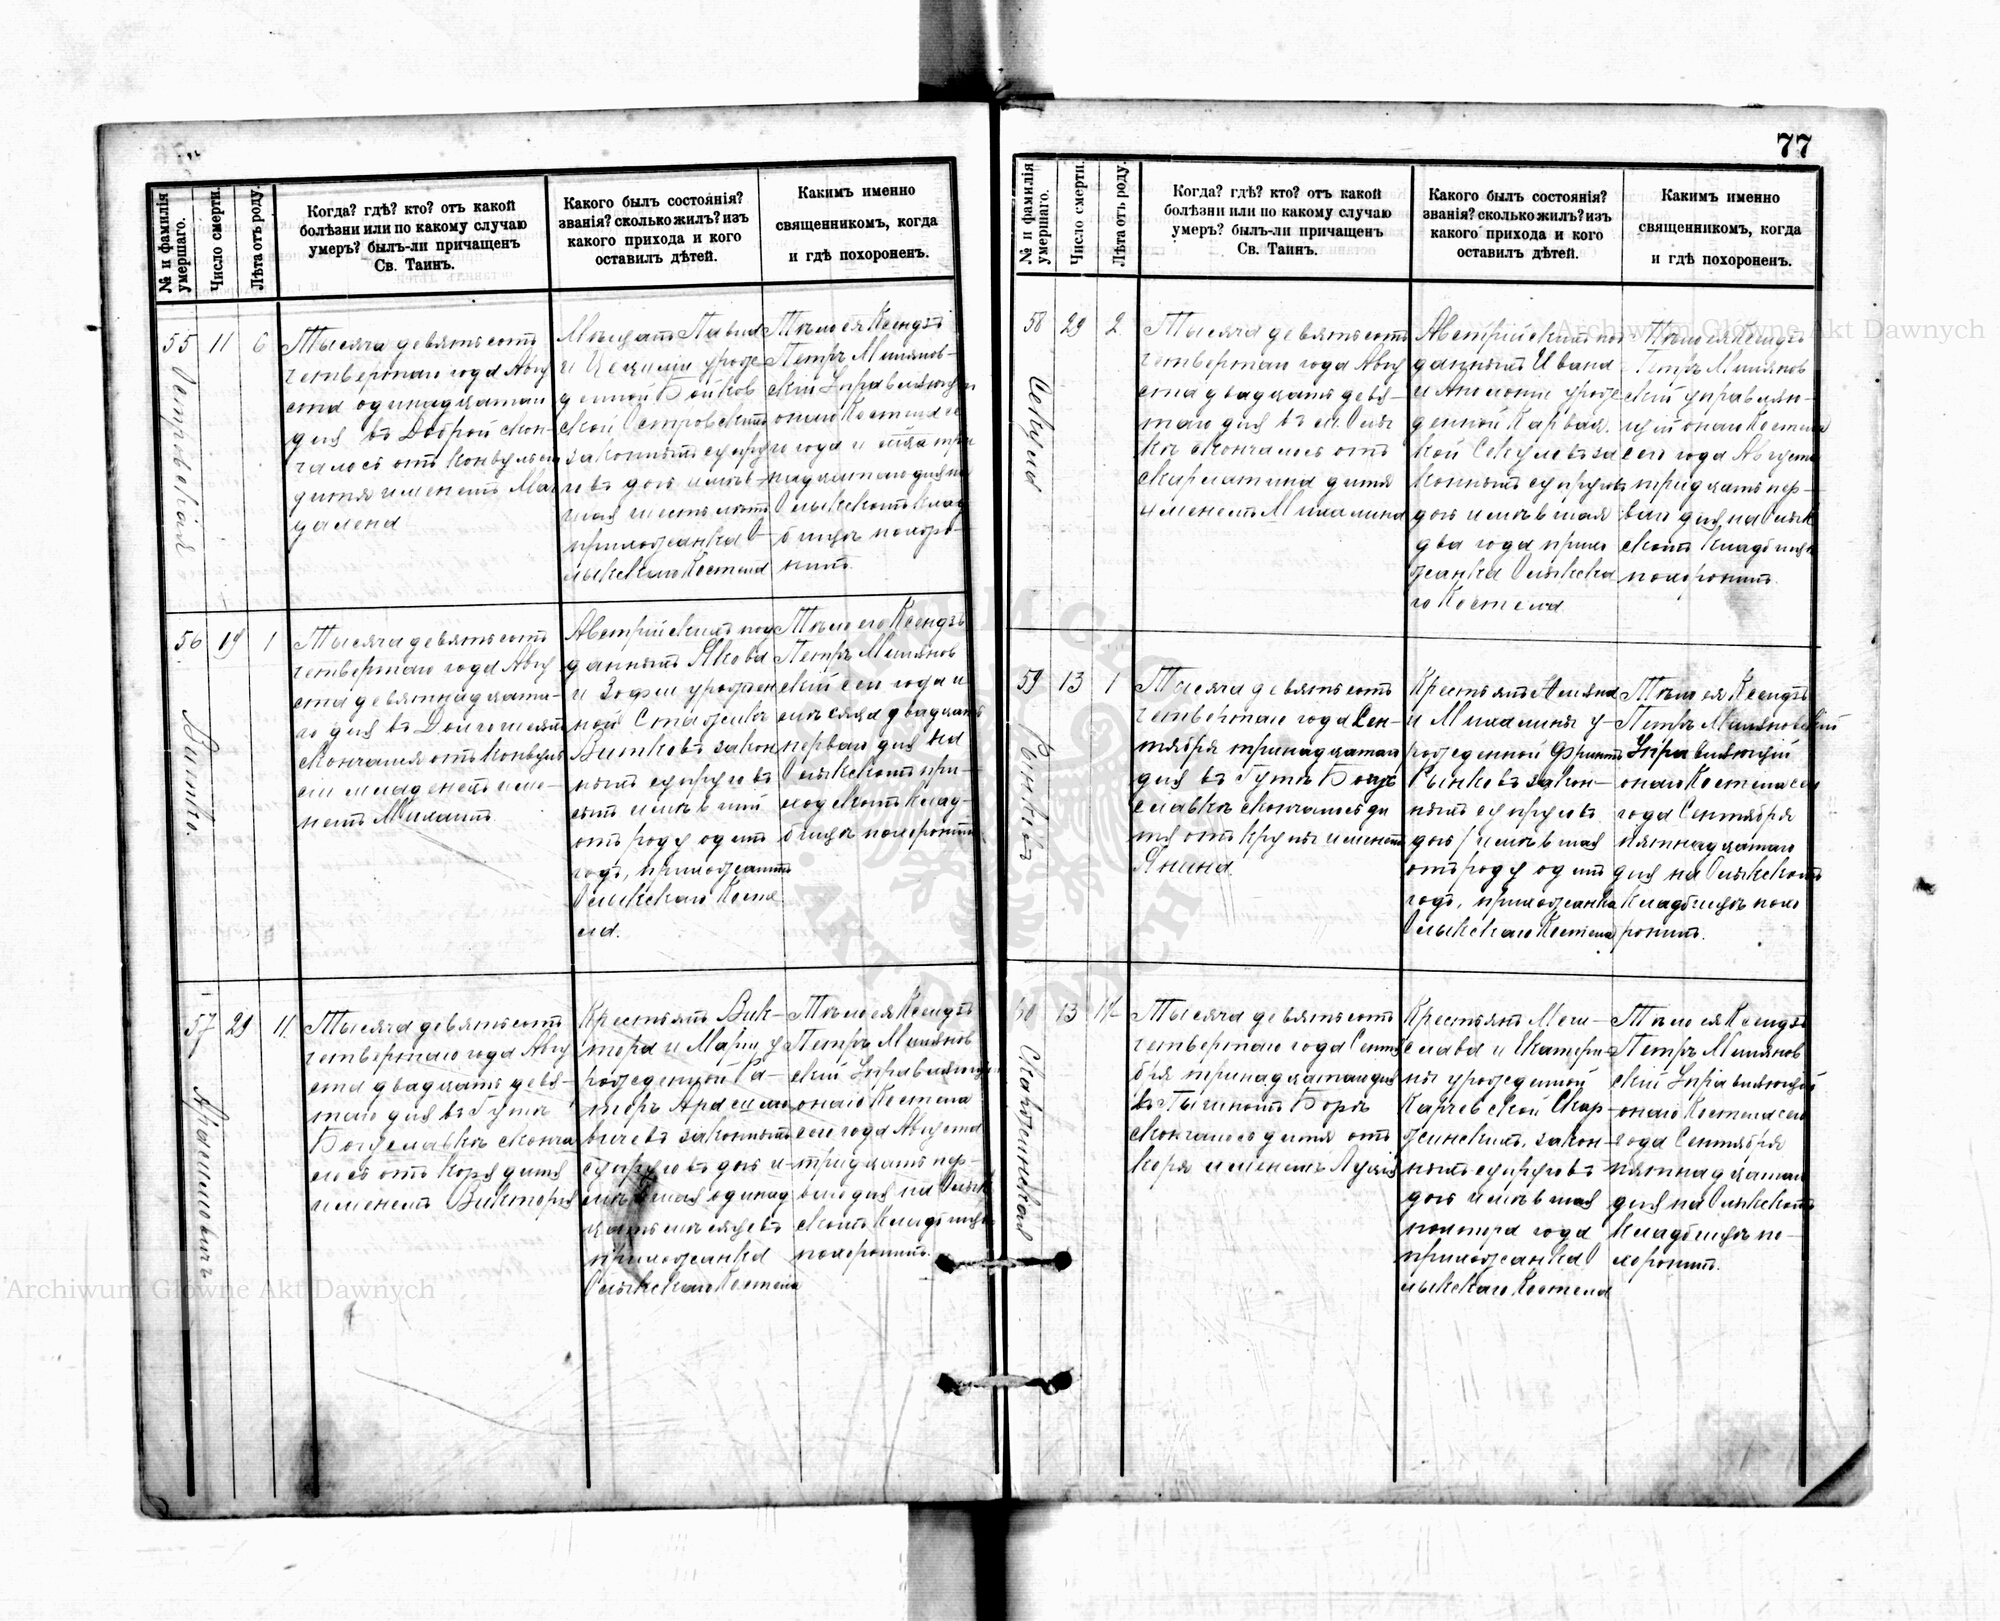 77
№ и фамилія умершаго.
Число смерти.
Лѣта отъ роду.
Когда? гдѣ? кто? отъ какой
болѣзни или по какому случаю
умеръ? былъ-ли причащенъ
Св. Таинъ.
Какого былъ состоянія?
званія? сколько жилъ? изъ
какого прихода и кого
оставилъ дѣтей.
Какимъ именно
священникомъ, когда
и гдѣ похороненъ.
55
Островская
11
6
Тысяча девятьсотъ
четвертаго года Авгу
ста одинадцатаго
дня въ Доброй скон-
чалось отъ конвульсіи
дитя именемъ Маг
далена
Мѣщанъ Павла
и Цециліи урож
денной Бойков
ской Островскихъ
законныхъ супру
говъ дочь имѣв-
шая шесть лѣтъ
прихожанка О-
лыкскаго Костела
Тѣло ея Ксендзъ
Петръ Милянов-
скій Управляющій
онаго Костела се
го года и м-ца три
надцатаго дня на
Олыкскомъ клад
бищѣ похоро-
нилъ.
56
Витко.
19
1
Тысяча девятьсотъ
четвертаго года Авгу
ста девятнадцата-
го дня въ
Скончался отъ конвуль
сіи младенецъ име-
немъ Михаилъ.
Австрійскихъ под
данныхъ Якова
и Зофіи урожден
ной
Витковъ закон
ныхъ супруговъ
сынъ имѣвшій
отъ роду одинъ
годъ, прихожанинъ
Олыкскаго Косте
ла.
Тѣло его Ксендзъ
Петръ Милянов
скій сего года и
мѣсяца двадцать
перваго дня на
Олыкскомъ при-
ходскомъ клад-
бищѣ похоронилъ
57
29
11.
Тысяча девятьсотъ
четвертаго года Авгу
ста двадцать девя-
таго дня въ Гутѣ
Богуславкѣ сконча
лось отъ кора дитя
именемъ Викторія
Крестьянъ Вик-
тора и Маріи у
рожденной
законныхъ
супруговъ дочь и-
мѣвшая одинад
цать мѣсяцевъ
прихожанка
Олыкскаго Костела
Тѣло ея Ксендзъ
Петръ Милянов
скій Управляющій
онаго Костела
сего года Августа
тридцать пер-
ваго дня на Олык
скомъ кладбищѣ
похоронилъ.
№ и фамилія умершаго.
Число смерти.
Лѣта отъ роду.
Когда? гдѣ? кто? отъ какой
болѣзни или по какому случаю
умеръ? былъ-ли причащенъ
Св. Таинъ.
Какого былъ состоянія?
званія? сколько жилъ? изъ
какого прихода и кого
оставилъ дѣтей.
Какимъ именно
священникомъ, когда
и гдѣ похороненъ.
58
Секула
29
2
Тысяча девятьсотъ
четвертаго года Авгу
ста двадцать девя-
таго дня въ м. Олы
кѣ скончалось отъ
скарлатина дитя
именемъ Михалина
Австрійскихъ под
данныхъ Ивана
и Аполоніи урож
денной
кой Секуловъ за
конныхъ супруговъ
дочь имѣвшая
два года прихо
жанка Олыкска
го Костела
Тѣло ея Ксендзъ
Петръ Милянов
скій управляю-
щій онаго Костела
сего года Августа
тридцать пер-
ваго дня на Олык
скомъ кладбищѣ
похоронилъ.
59
13
1
Тысяча девятьсотъ
четвертаго года Сен-
тября тринадцатаго
дня въ Гутѣ Богу
славкѣ скончалось ди
тя отъ крупы именемъ
Янина.
Крестьянъ
и Михалины у
рожденной
законныхъ
супруговъ
дочь имѣвшая
отъ роду одинъ
годъ, прихожанка
Олыкскаго Костела
Тѣло ея Ксендзъ
Петръ Миляновскій
Управляющій
онаго Костела сего
года Сентября
пятнадцатаго
дня на Олыкскомъ
кладбищѣ похо
ронилъ.
60
13
Тысяча девятьсотъ
четвертаго года Сентя
бря тринадцатаго дня
въ
скончалось дитя отъ
кора именемъ Луція
Крестьянъ Меч-
слава и Екатери-
ны урожденной
Скар-
жинскихъ, закон-
ныхъ супруговъ
дочь имѣвшая
полтора года
прихожанка О
лыкскаго Костела
Тѣло ея Ксендзъ
Петръ Милянов
скій Управляющій
онаго Костела сего
года Сентября
пятнадцатаго
дня на Олыкскомъ
кладбищѣ по-
хоронилъ.
Archiwum Główne Akt Dawnych
Archiwum Główne Akt Dawnych